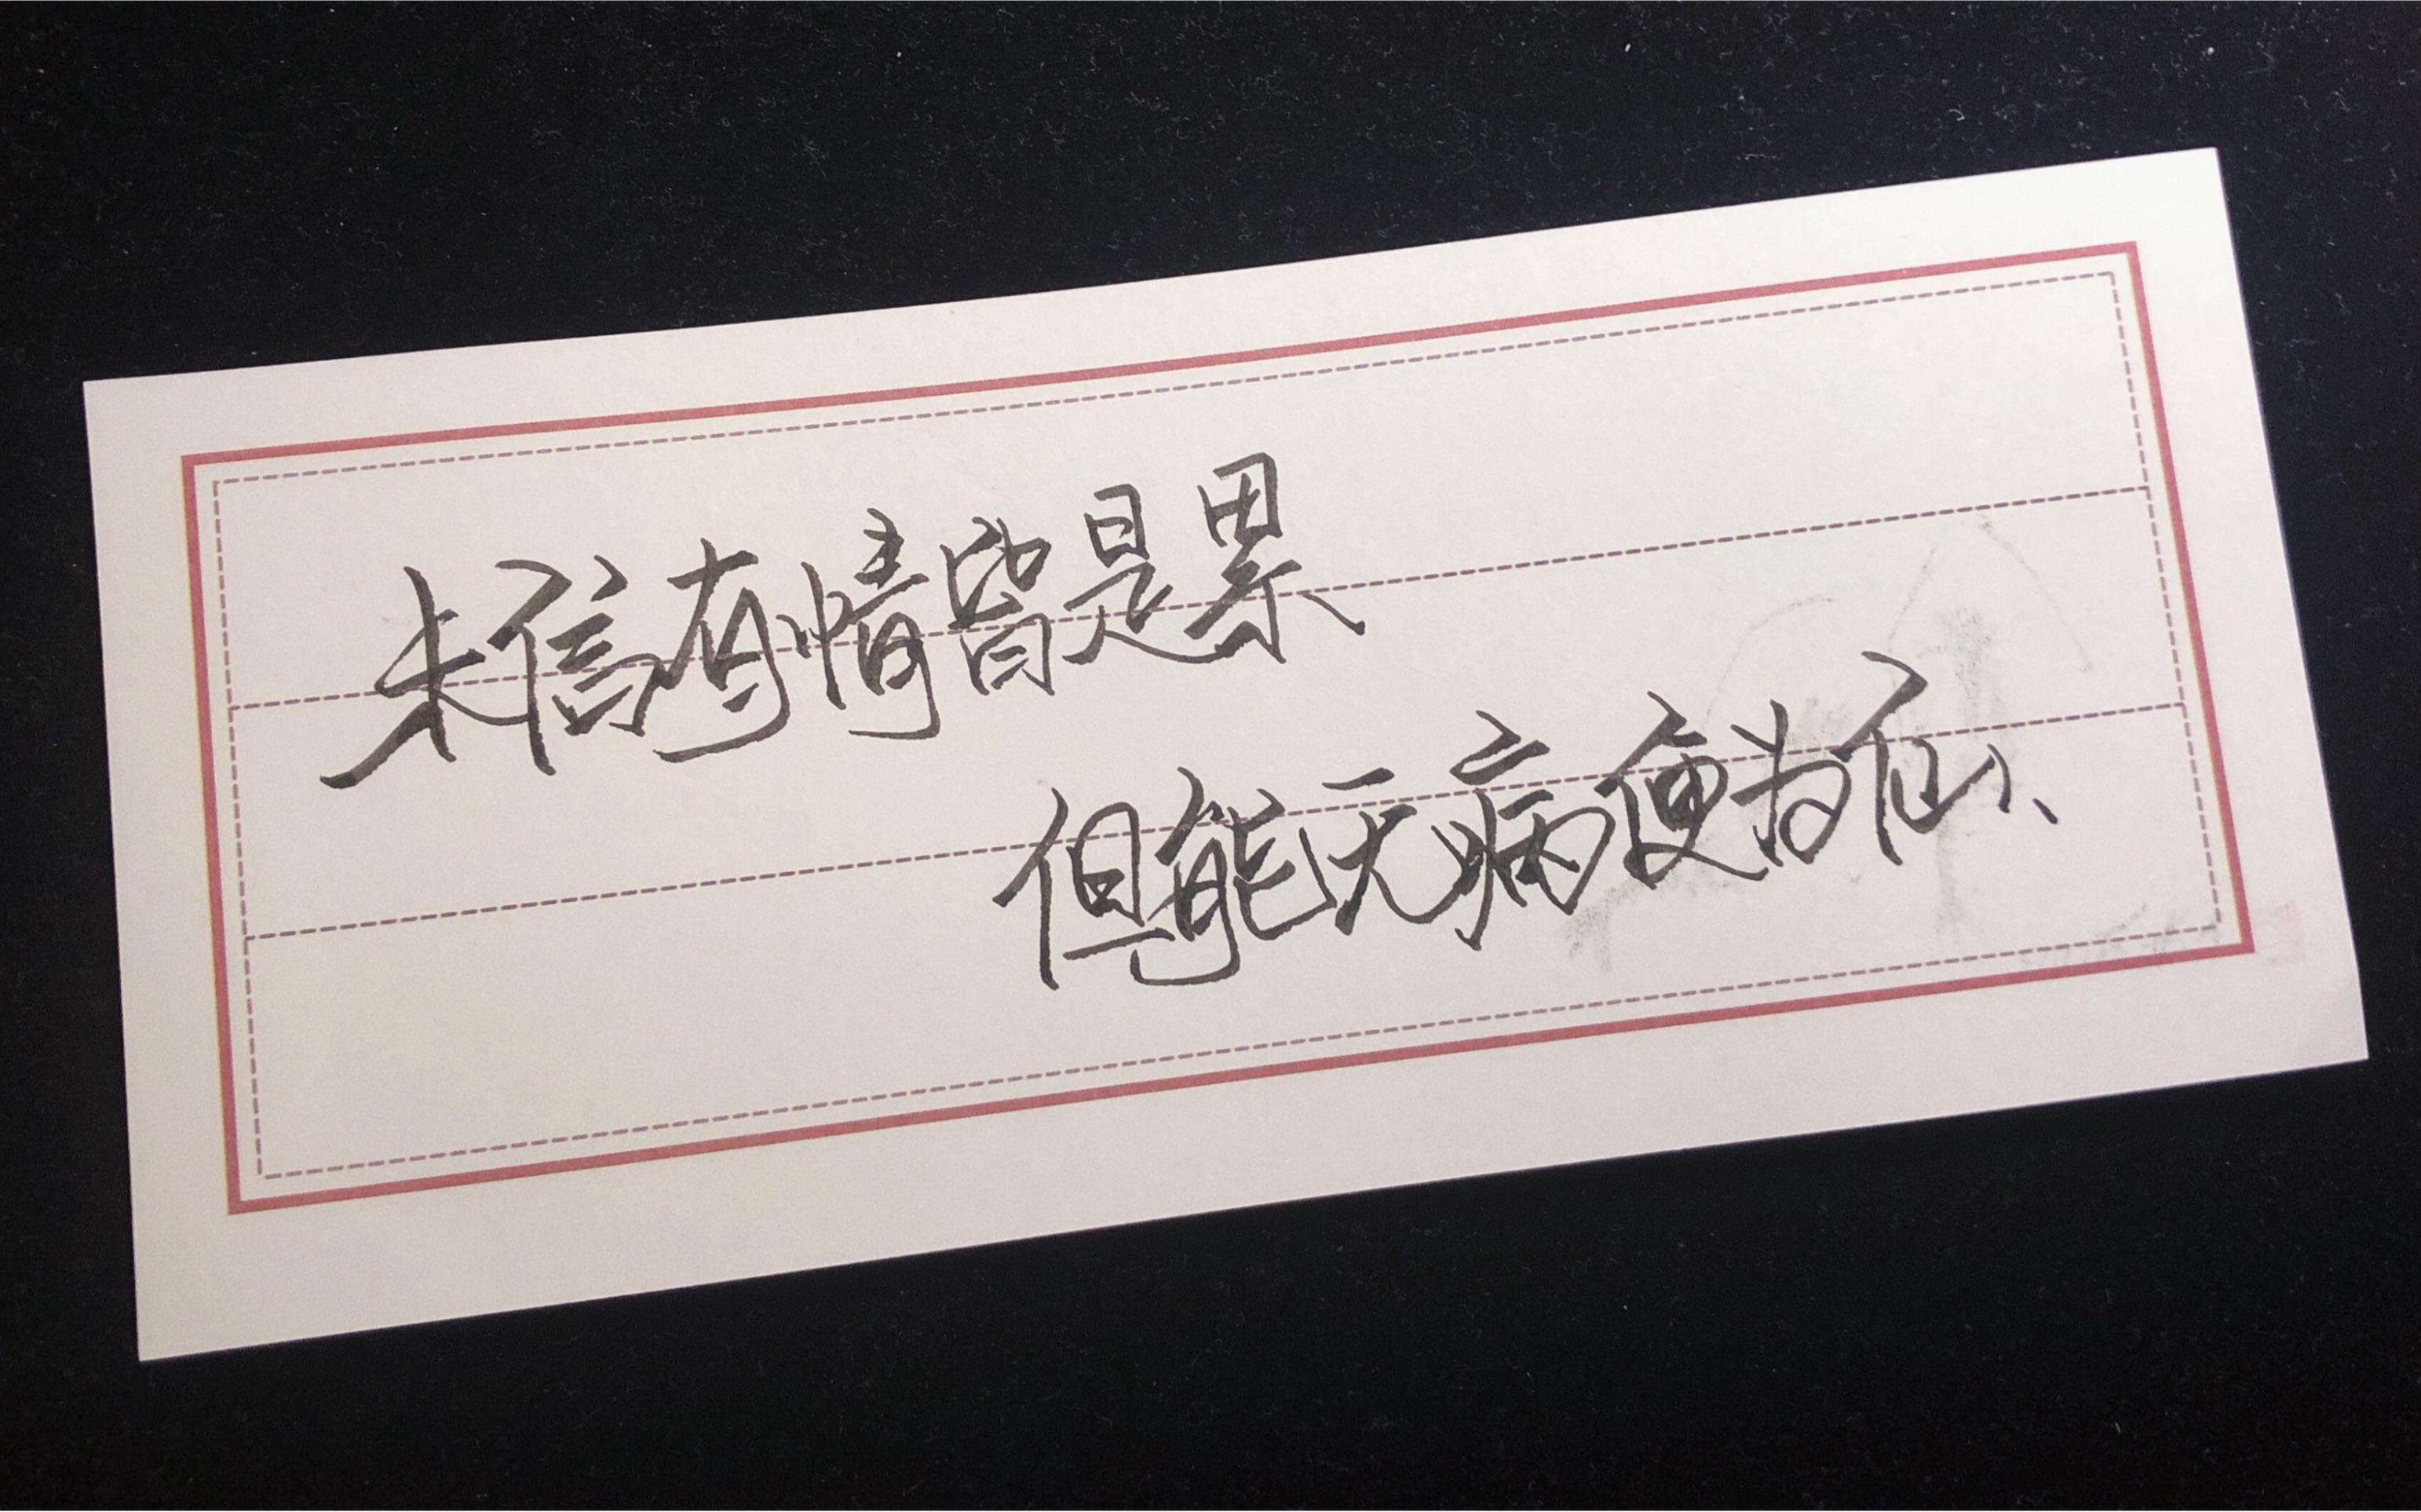 未信有情皆是累
但能无病便为仙